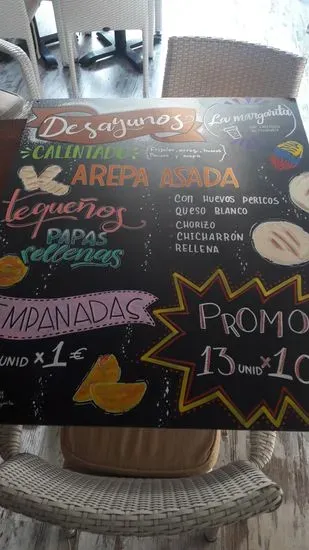 Desayunos
La margarita
CALENTADO
AREPA ASADA
- CON HUEVOS PERICOS
- QUESO BLANCO
- CHORIZO
- CHICHARRÓN
- RELLENA
tequeños
PAPAS
rellenas
EMPANADAS
UNID x 1€
PROMO
13 UNID x 10